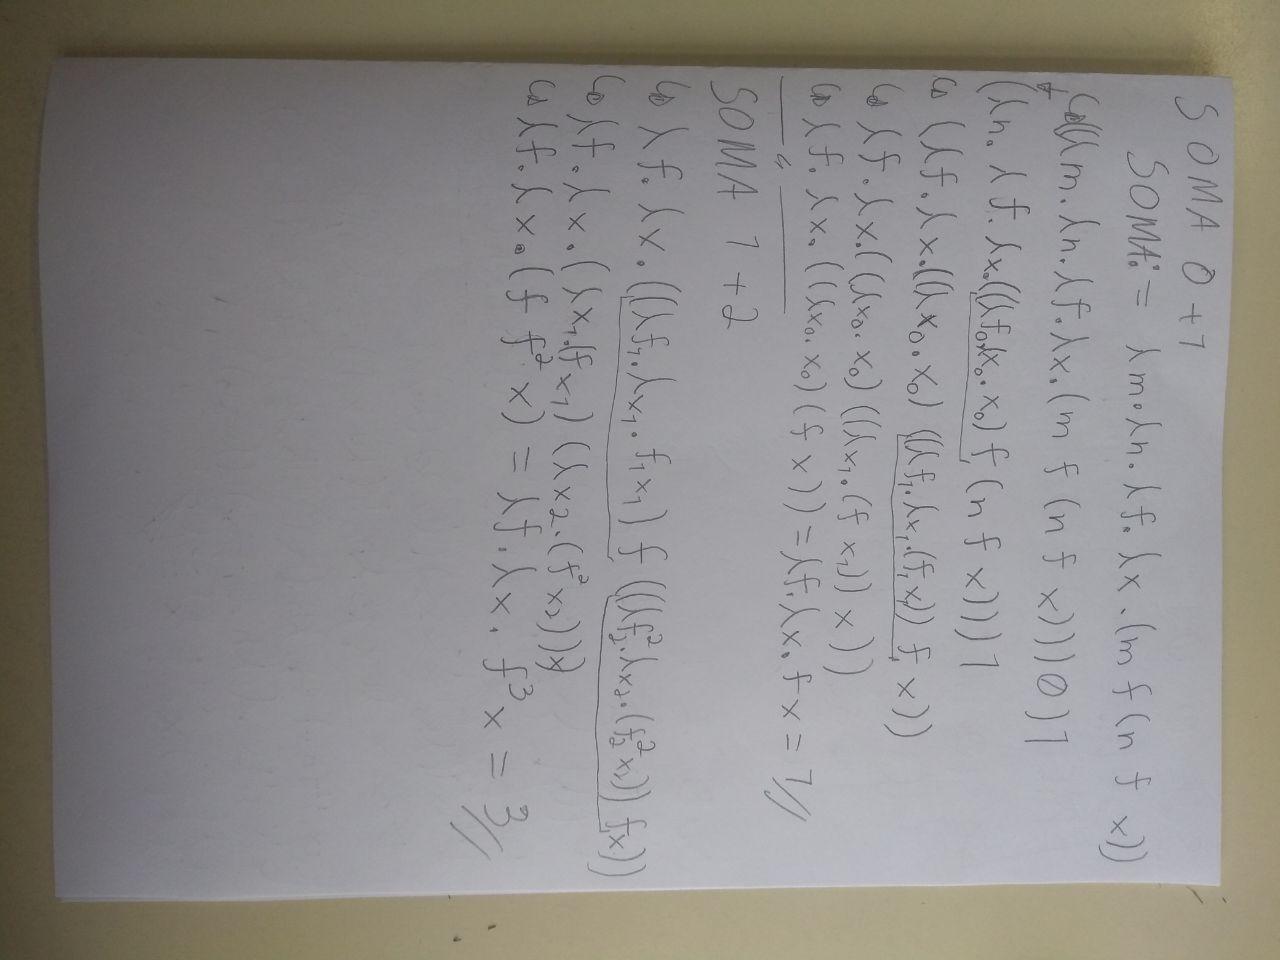 SOMA 0 + 1
SOMA: = λm.λn.λf.λx.(m f (n f x))
↳ (((λm.λn.λf.λx.(m f (n f x))) 0) 1
(λn.λf.λx.((λf₀.λx₀.x₀) f (n f x))) 1
↳ (λf.λx.((λx₀.x₀) ((λf₁.λx₁.(f₁ x₁)) f x))
↳ λf.λx.((λx₀.x₀) ((λx₁.(f x₁)) x))
↳ λf.λx.((λx₀.x₀) (f x)) = λf.λx.f x = 1//
SOMA 1 + 2
↳ λf.λx.((λf₁.λx₁.f₁ x₁) f (((λf₂².λx₂.(f₂² x₂))) f x))
↳ λf.λx.(λx₁.(f x₁) (λx₂.(f² x₂)) x)
↳ λf.λx.(f f² x) = λf.λx.f³ x = 3//